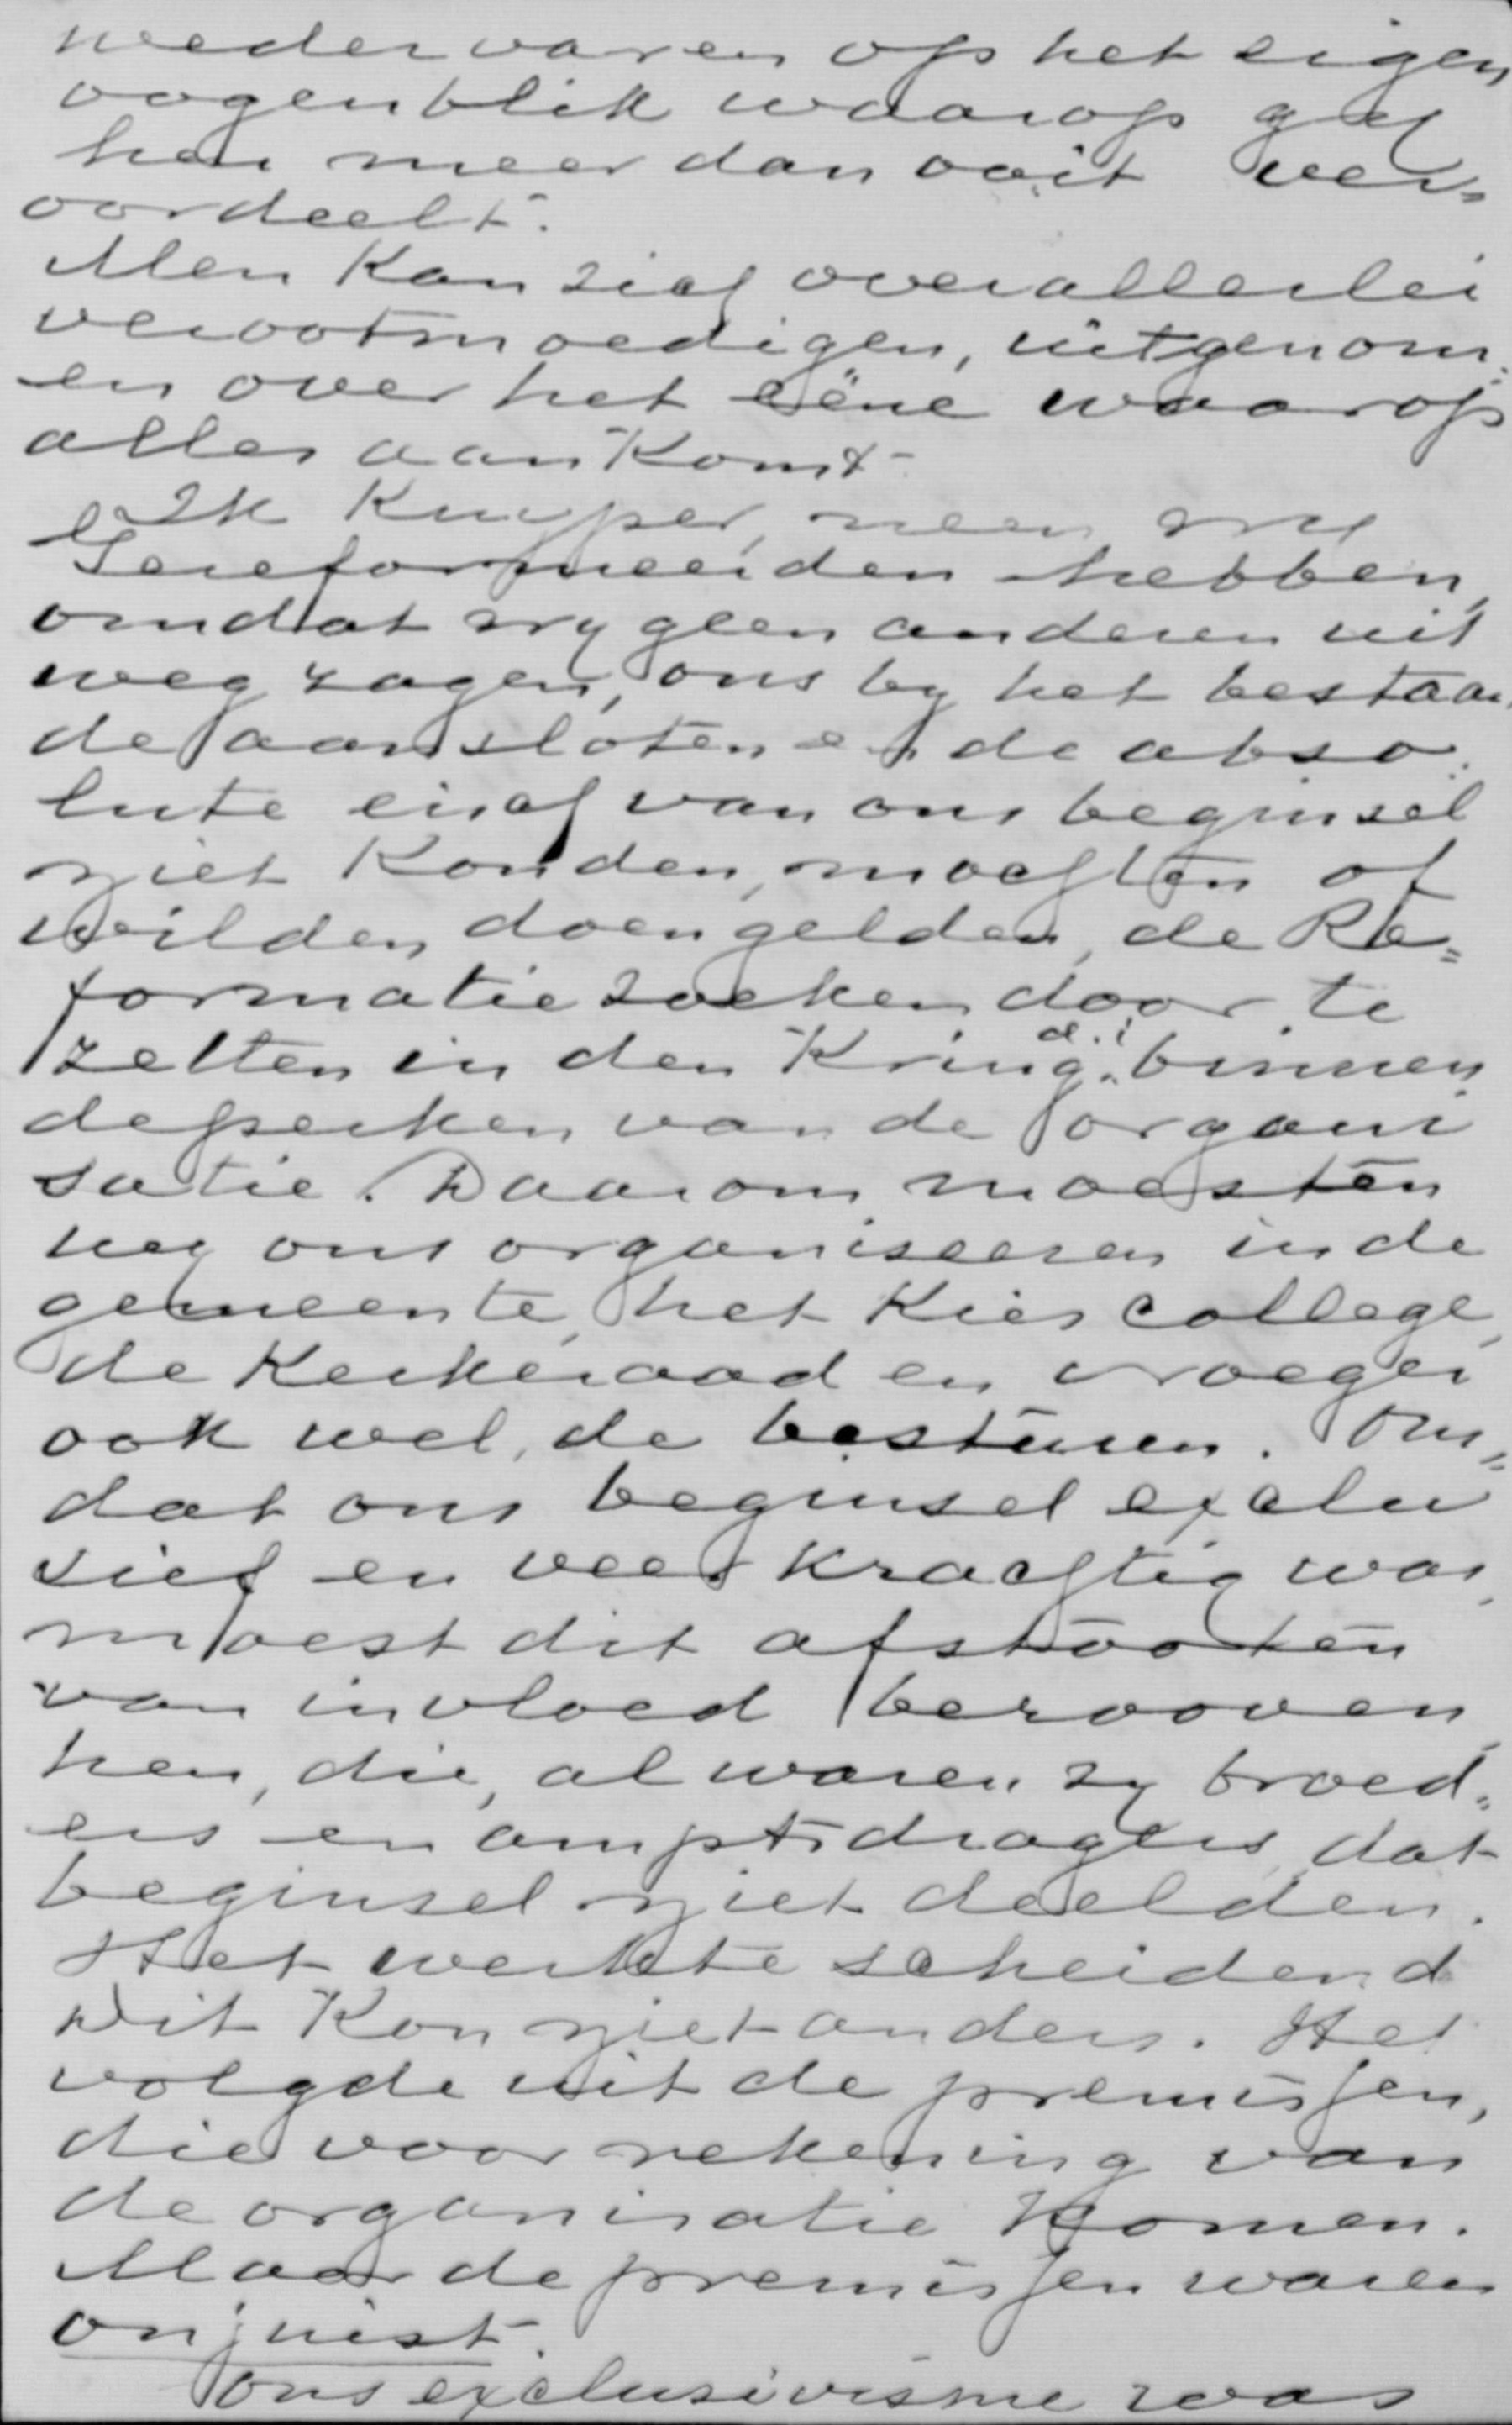 wedervaren op het eigen
oogenblik waarop gij
hen meer dan ooit ver=
oordeelt.
Men kan zich over allerlei
verootmoedigen, uitgenom=
en over het eëne waarop
alles aankomt
Ik Kuyper, neen wij
Gereformeerden hebben,
omdat wij geen anderen uit
weg zagen, ons bij het bestaan
de aansloten en de abso
lute eisch van ons beginsel
niet konden, mochten of
wilden doen gelden, de Re=
formatie zoeken door te
zetten in den Kring d.i. binnen
de perken van de organi
satie. Daarom moesten
wij ons organiseeren in de
gemeente, het Kiescollege,
de Kerkeraad en vroeger
ook wel, de besturen. Om=
dat ons beginsel exclu
sief en veerkrachtig was,
moest dit afstooten
van invloed berooven,
hen, die, al waren zij broed=
ers en amptsdragers, dat
beginsel niet deelden.
Het werkte scheidend
Dit kon niet anders. Het
volgde uit de premissen,
die voor rekening van
de organisatie komen.
Maar de premissen waren
onjuist.
Ons exclusivisme was